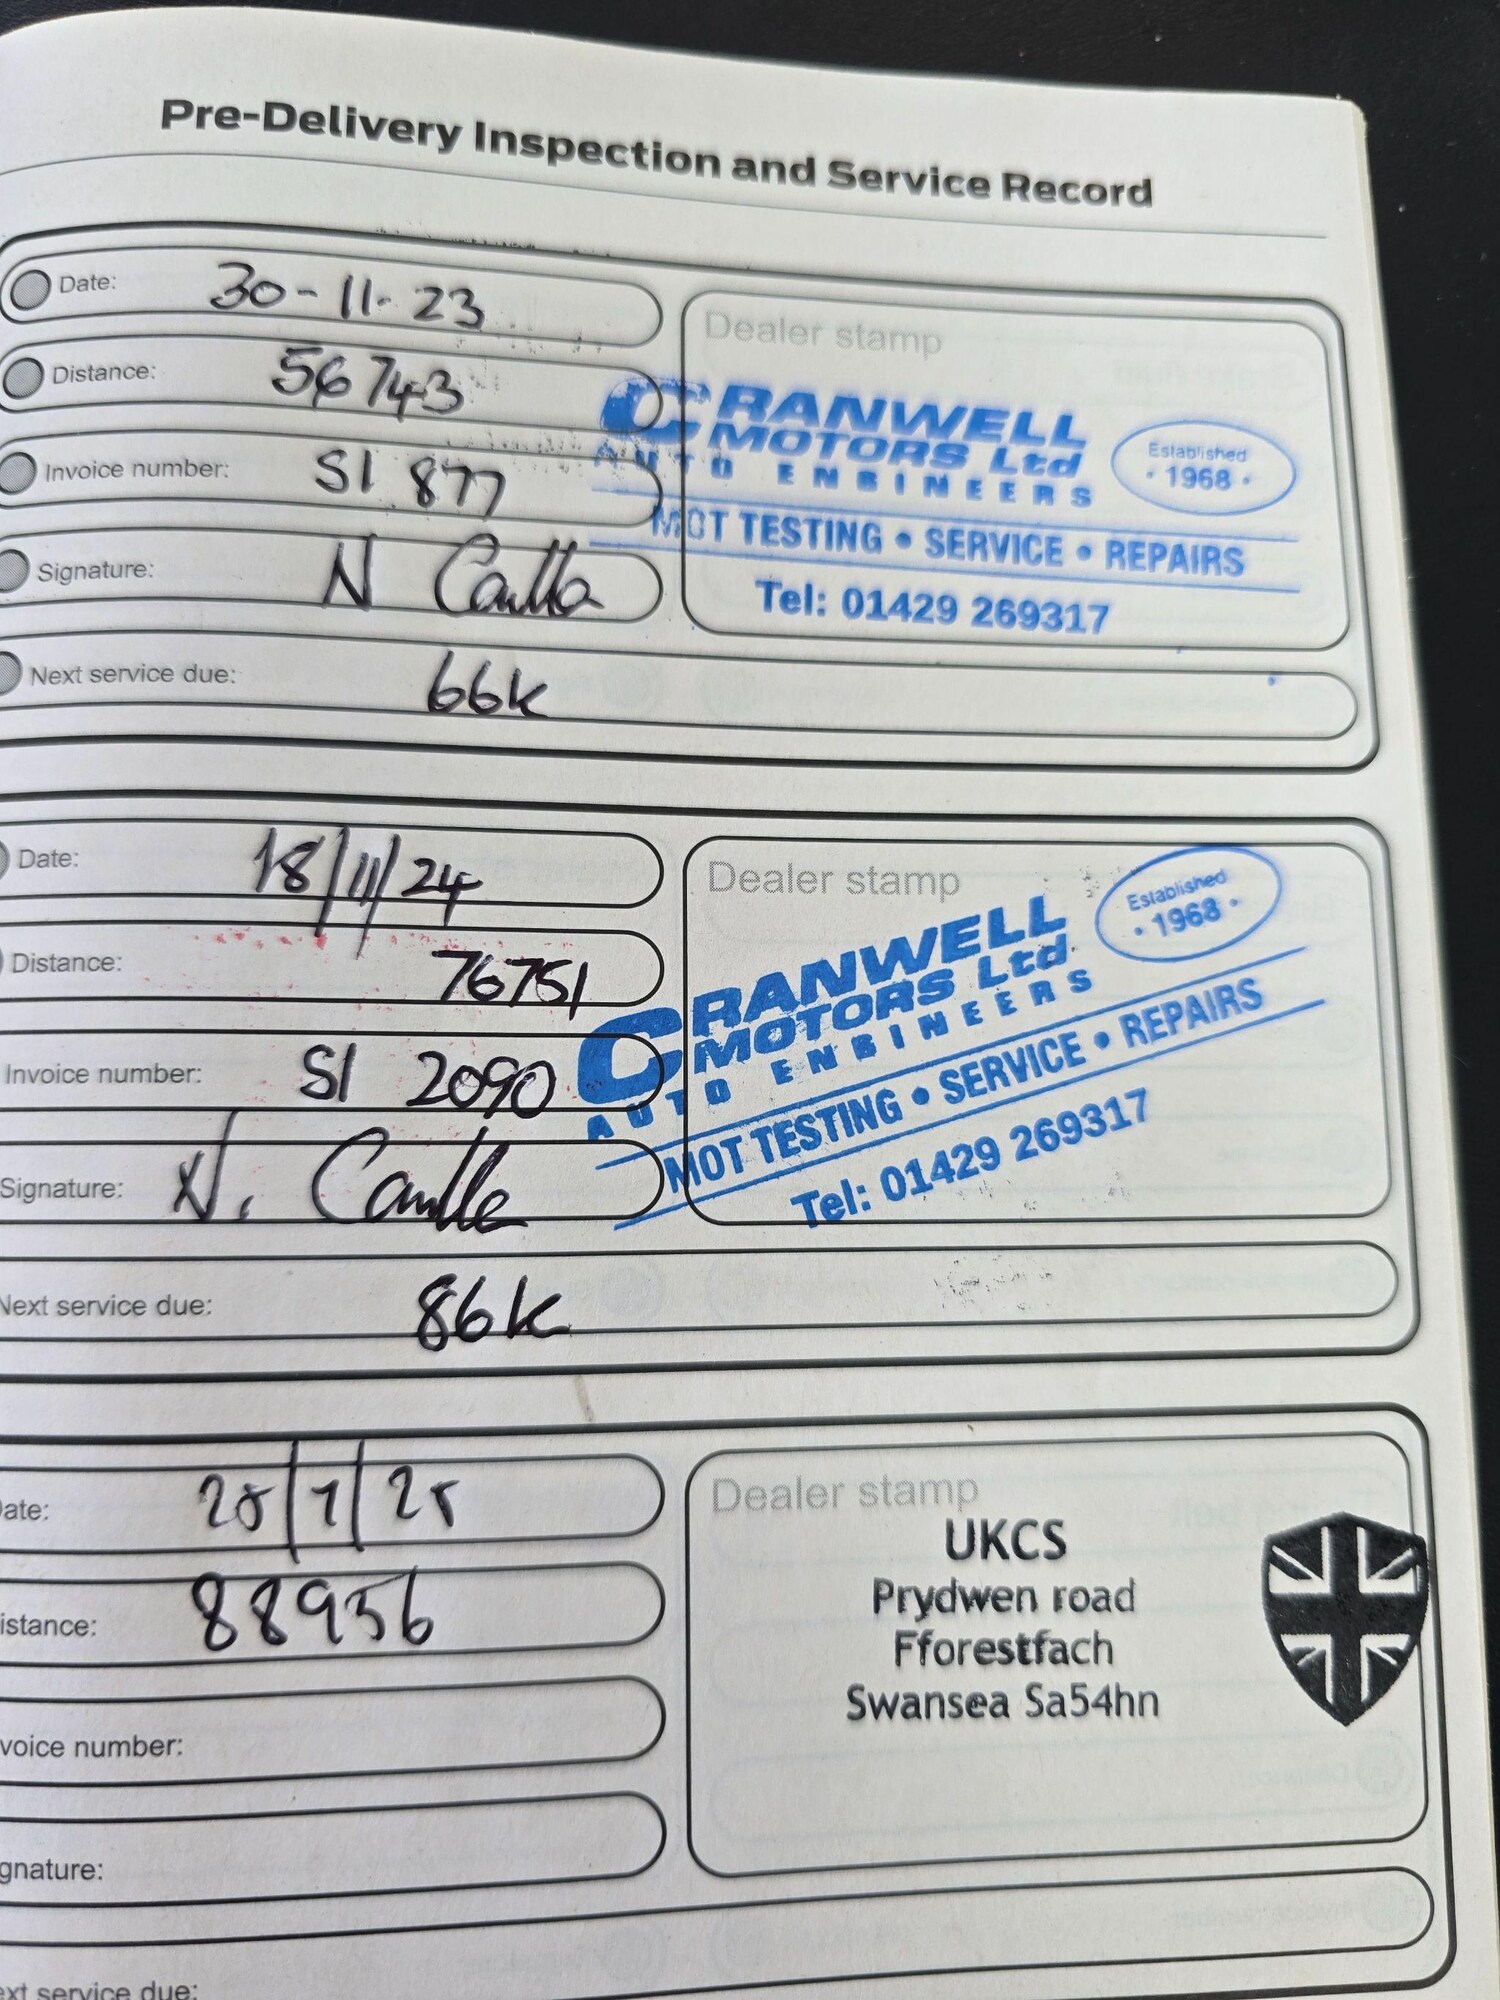 Pre-Delivery Inspection and Service Record
Date: 30-11-23
Distance: 56743
Invoice number: SI 877
Signature: N
Next service due: 66k
Dealer stamp
CRANWELL
MOTORS Ltd
AUTO ENGINEERS
Established
• 1968 •
MOT TESTING • SERVICE • REPAIRS
Tel: 01429 269317
Date: 18/11/24
Distance: 76751
Invoice number: SI 2090
Signature: N.
Next service due: 86k
Dealer stamp
CRANWELL
MOTORS Ltd
AUTO ENGINEERS
Established
• 1968 •
MOT TESTING • SERVICE • REPAIRS
Tel: 01429 269317
ate: 25/7/25
istance: 88956
voice number:
gnature:
ext service due:
Dealer stamp
UKCS
Prydwen road
Fforestfach
Swansea Sa54hn